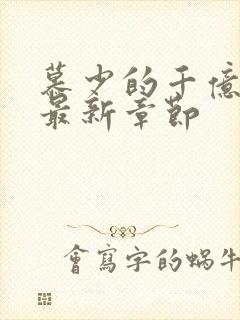 慕少的千億
最新章節
會寫字的蝸牛